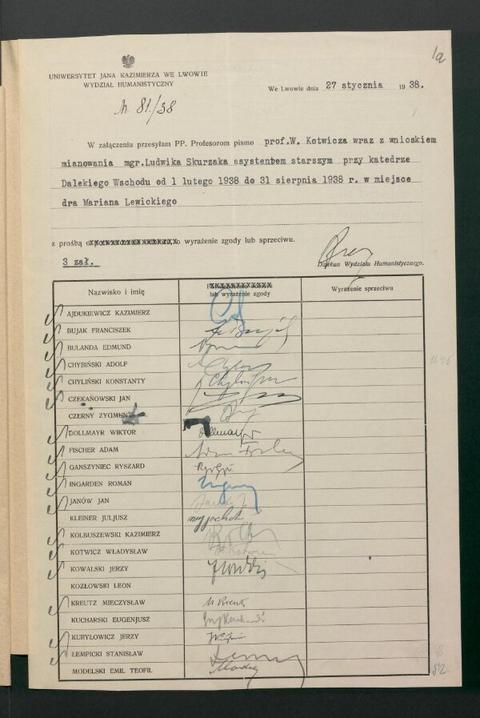 1a
UNIWERSYTET JANA KAZIMIERZA WE LWOWIE
WYDZIAŁ HUMANISTYCZNY
We Lwowie dnia 27 stycznia 1938.
N 81/38
W załączeniu przesyłam PP. Profesorom pismo prof.W. Kotwicza wraz z wnioskiem
mianowania mgr.Ludwika Skurzaka asystentem starszym przy katedrze
Dalekiego Wschodu od 1 lutego 1938 do 31 sierpnia 1938 r. w miejsce
dra Mariana Lewickiego
z prośbą o wyrażenie zgody lub sprzeciwu.
3 zał.
Dziekan Wydziału Humanistycznego.
Nazwisko i imię
lub wyrażenie zgody
Wyrażenie sprzeciwu
AJDUKIEWICZ KAZIMIERZ
BUJAK FRANCISZEK
BULANDA EDMUND
CHYBIŃSKI ADOLF
CHYLIŃSKI KONSTANTY
CZEKANOWSKI JAN
CZERNY ZYGMUNT
DOLLMAYR WIKTOR Dollmayr
FISCHER ADAM Adam Fischer
GANSZYNIEC RYSZARD
INGARDEN ROMAN Ingarden
JANÓW JAN
KLEINER JULJUSZ wyjechał
KOLBUSZEWSKI KAZIMIERZ
KOTWICZ WŁADYSŁAW
KOWALSKI JERZY
KOZŁOWSKI LEON
KREUTZ MIECZYSŁAW M Kreutz
KUCHARSKI EUGENJUSZ
KURYŁOWICZ JERZY
ŁEMPICKI STANISŁAW
MODELSKI EMIL TEOFIL
82.